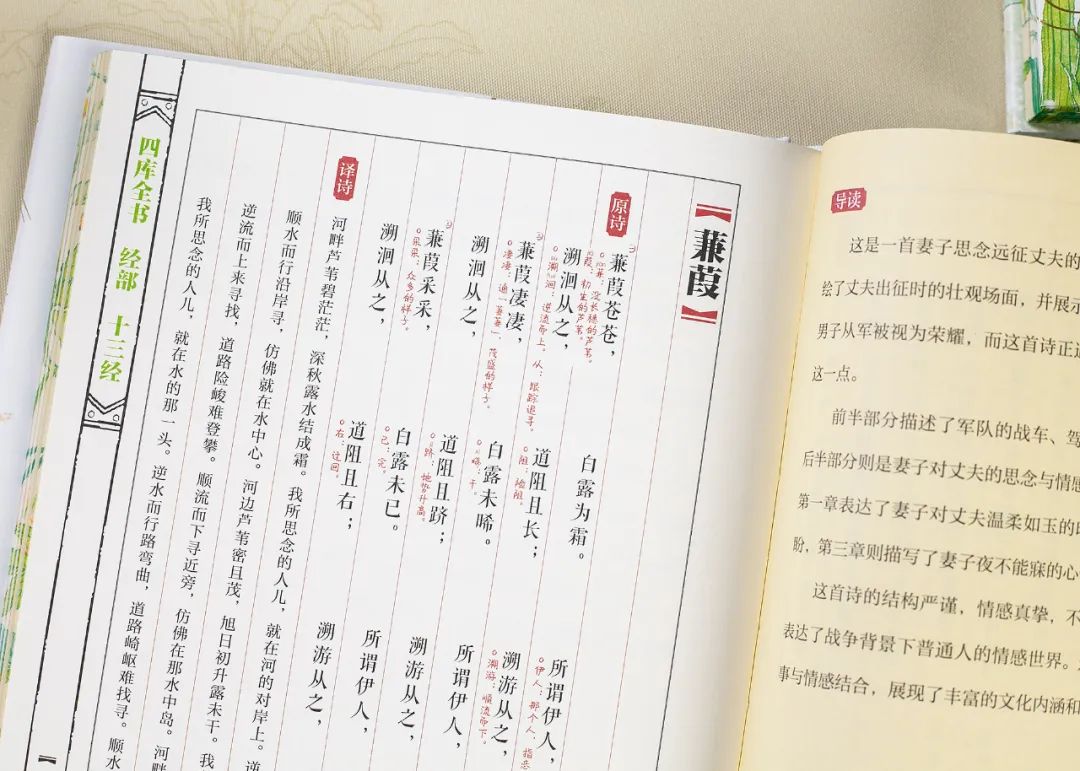 【蒹葭】
原诗
蒹葭苍苍，白露为霜。所谓伊人，
蒹：没长穗的芦苇。
葭：初生的芦苇。
伊人：那个人，指
溯洄从之，道阻且长；溯游从之，
溯洄：逆流而上。从：跟踪追寻。
阻：险阻。
溯游：顺流而下。
蒹葭凄凄，白露未晞。所谓伊人，
凄凄：通“萋萋”，茂盛的样子。
晞：干。
溯洄从之，道阻且跻；溯游从之，
跻：地势升高。
蒹葭采采，白露未已。所谓伊人，
采采：众多的样子。
已：完。
溯洄从之，道阻且右；溯游从之，
右：迂回。
译诗
河畔芦苇碧茫茫，深秋露水结成霜。我所思念的人儿，就在河的对岸上。逆
顺水而行沿岸寻，仿佛就在水中心。河边芦苇密且茂，旭日初升露未干。我
逆流而上来寻找，道路险峻难登攀。顺流而下寻近旁，仿佛在那水中岛。河畔
我所思念的人儿，就在水的那一头。逆水而行路弯曲，道路崎岖难找寻。顺水
四库全书 经部 十三经
导读
这是一首妻子思念远征丈夫的
绘了丈夫出征时的壮观场面，并展示
男子从军被视为荣耀，而这首诗正
这一点。
前半部分描述了军队的战车、驾
后半部分则是妻子对丈夫的思念与情感
第一章表达了妻子对丈夫温柔如玉的
盼，第三章则描写了妻子夜不能寐的心
这首诗的结构严谨，情感真挚，不
表达了战争背景下普通人的情感世界。
事与情感结合，展现了丰富的文化内涵和